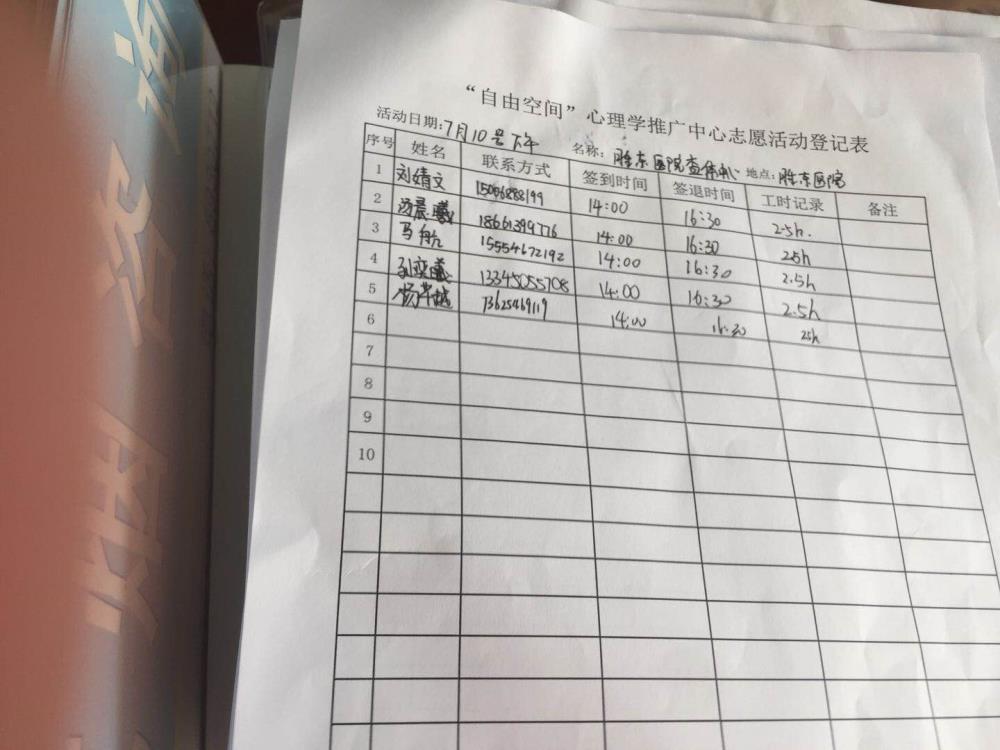 “自由空间”心理学推广中心志愿活动登记表
活动日期:7月10号下午 名称: 胜东医院查体 地点: 胜东医院
序号 姓名 联系方式 签到时间 签退时间 工时记录 备注
1 刘婧文 15066888199 14:00 16:30 2.5h.
2 汤晨曦 18661399776 14:00 16:30 2.5h
3 马航 15554672192 14:00 16:30 2.5h
4 孙奕曦 13345055708 14:00 16:30 2.5h
5 13625469119 14:00 16:30 2.5h
6
7
8
9
10